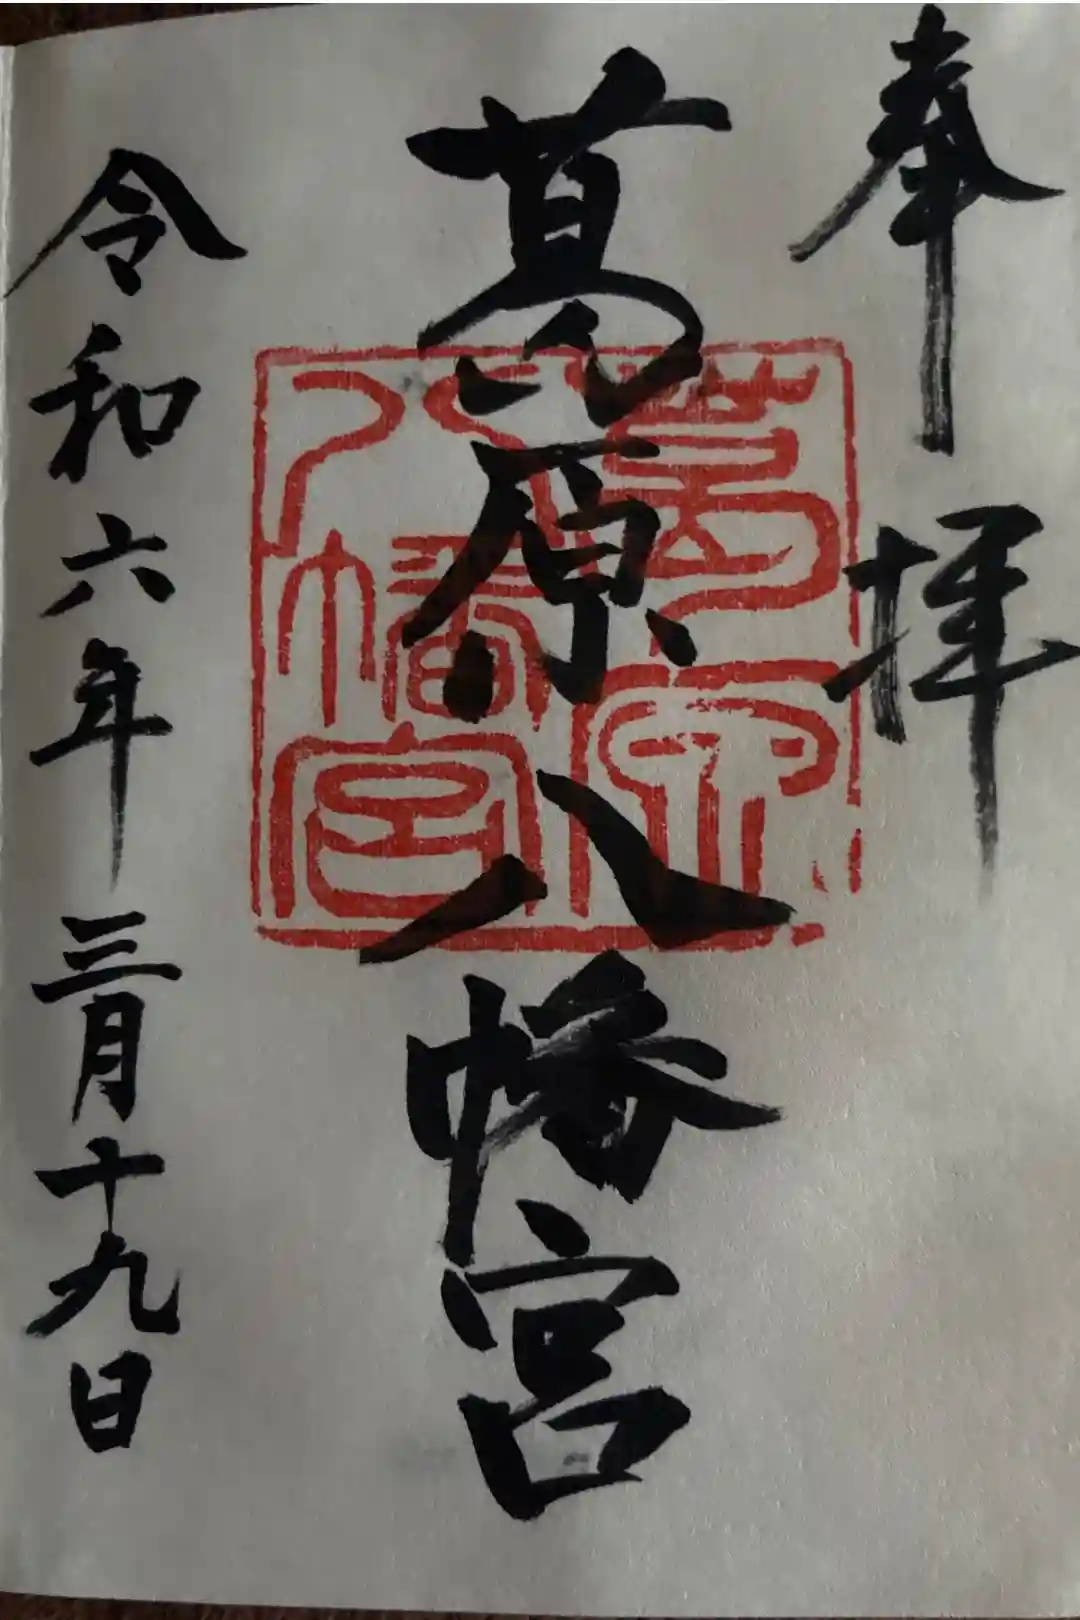 奉拝
葛原八幡宮
葛原八幡宮
令和六年三月十九日